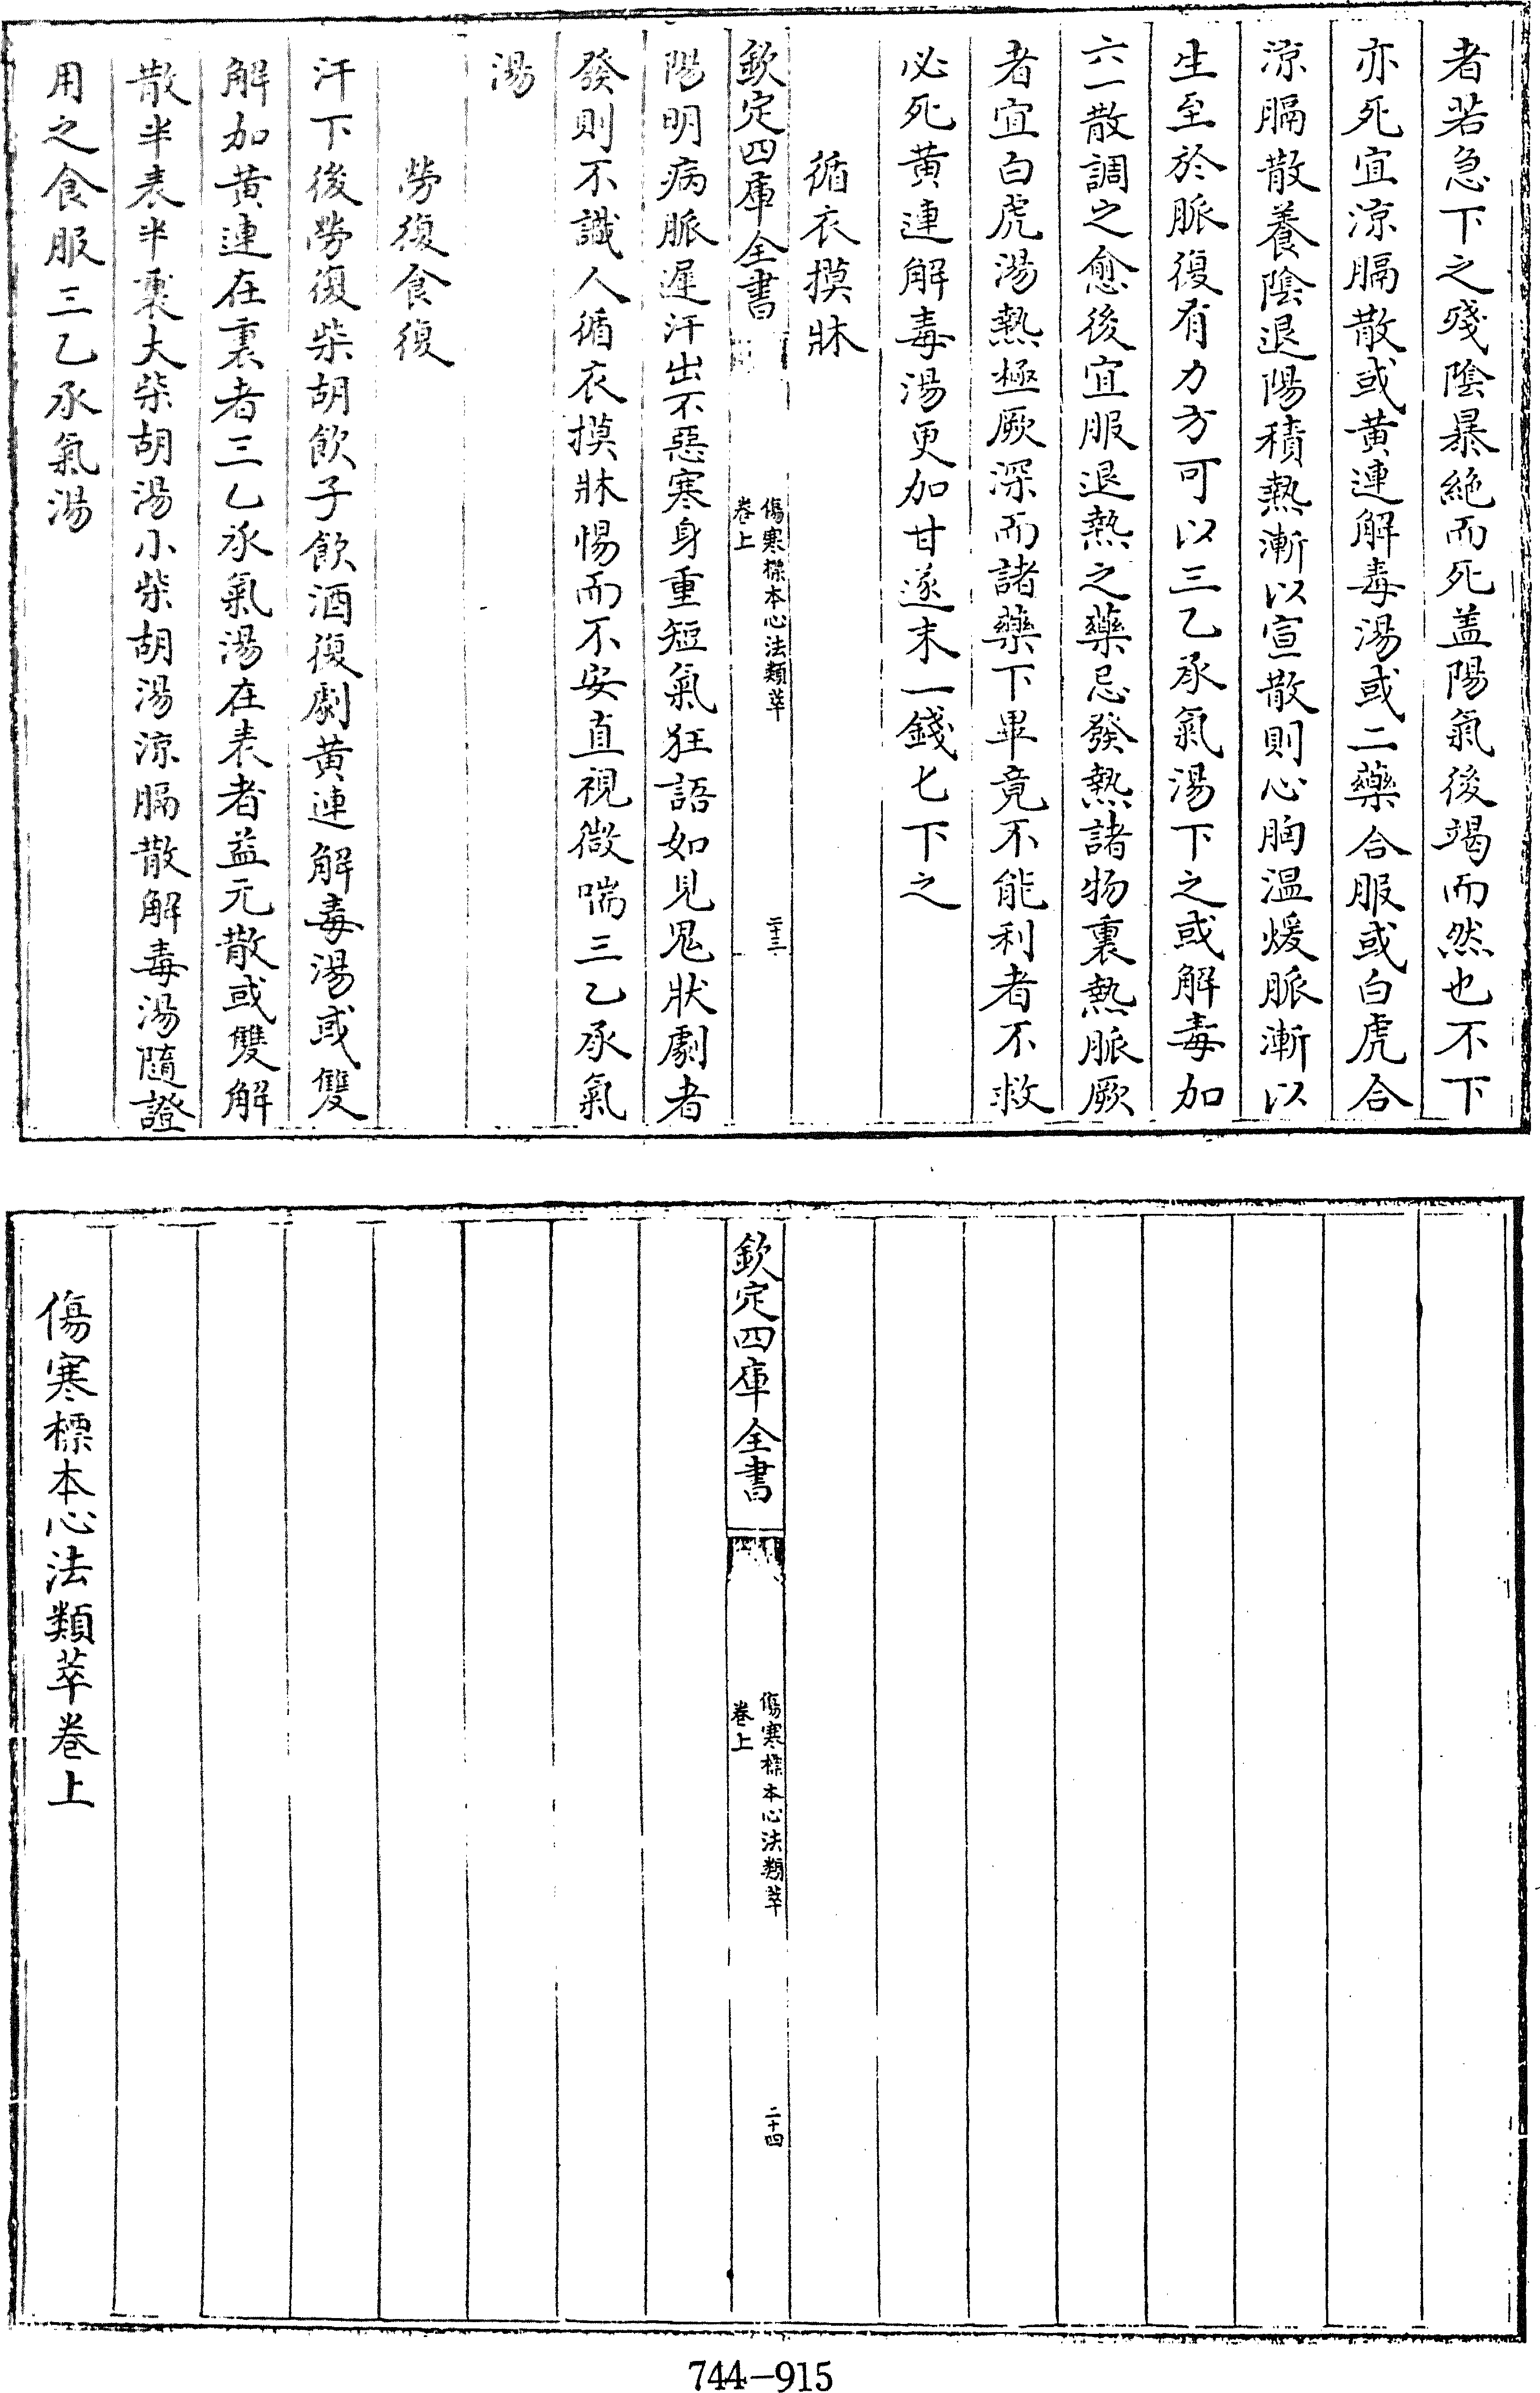 者若急下之殘陰暴絶而死盖陽氣後竭而然也不下
亦死宜涼膈散或黄連解毒湯或二藥合服或白虎合
涼膈散養陰退陽積熱漸以宣散則心胸温煖脈漸以
生至於脈復有力方可以三乙承氣湯下之或解毒加
六一散調之愈後宜服退熱之藥忌發熱諸物裏熱脈厥
者宜白虎湯熱極厥深而諸藥下畢竟不能利者不救
必死黄連解毒湯更加甘遂末一錢匕下之
循衣摸牀
欽定四庫全書
傷寒標本心法類萃
卷上
二十三
陽明病脈遲汗出不惡寒身重短氣狂語如見鬼狀劇者
發則不識人循衣摸牀惕而不安直視微喘三乙承氣
湯
勞復食復
汗下後勞復柴胡飲子飲酒復劇黄連解毒湯或雙
解加黄連在裏者三乙承氣湯在表者益元散或雙解
散半表半裏大柴胡湯小柴胡湯涼膈散解毒湯隨證
用之食服三乙承氣湯
欽定四庫全書
傷寒標本心法類萃
卷上
二十四
傷寒標本心法類萃卷上
744-915